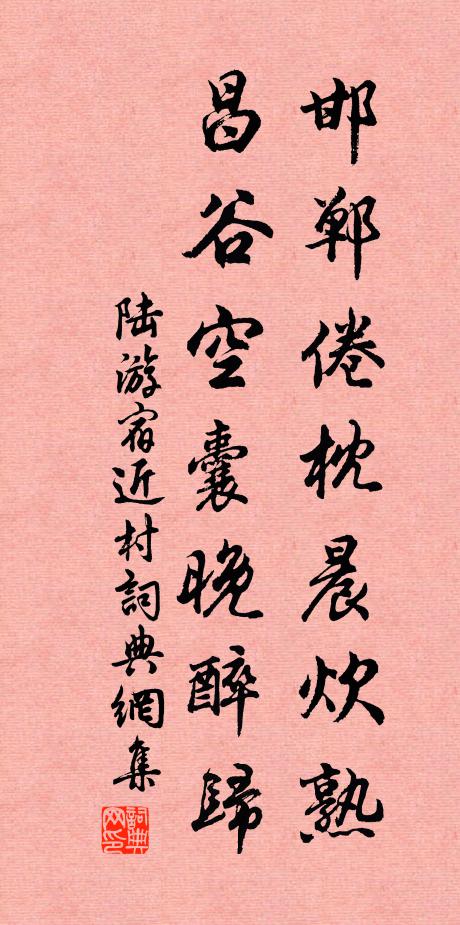 邯鄲倦枕晨炊熟
昌谷空囊晚醉歸
陆游宿近村詞典網集
詞典网印